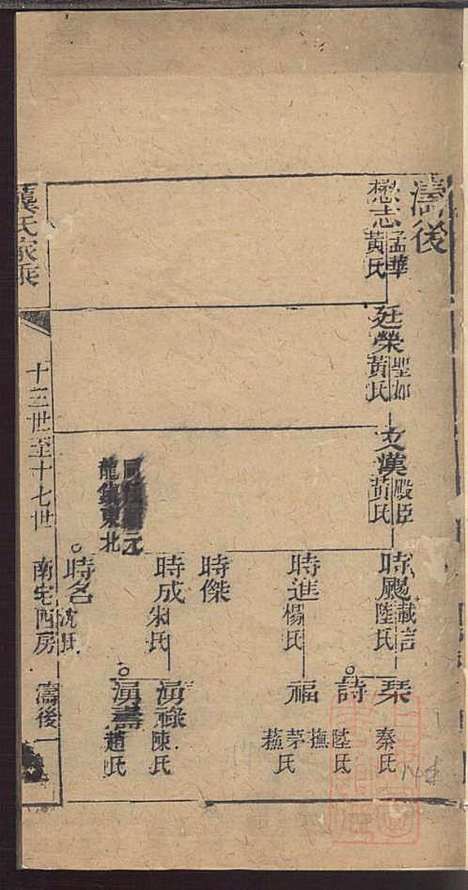 濤後
懋志
孟華
黃氏
廷榮
聖如
黃氏
文漢
殿臣
黃氏
時颺
載言
陸氏
時進
楊氏
時傑
時成
朱氏
時名
沈氏
龍鎮東北
琹
秦氏
詩
陸氏
撫
福
茅氏
蘊
湧祿
陳氏
湧壽
趙氏
氏家乘
十三世至十七世
南宅西房
濤後
一